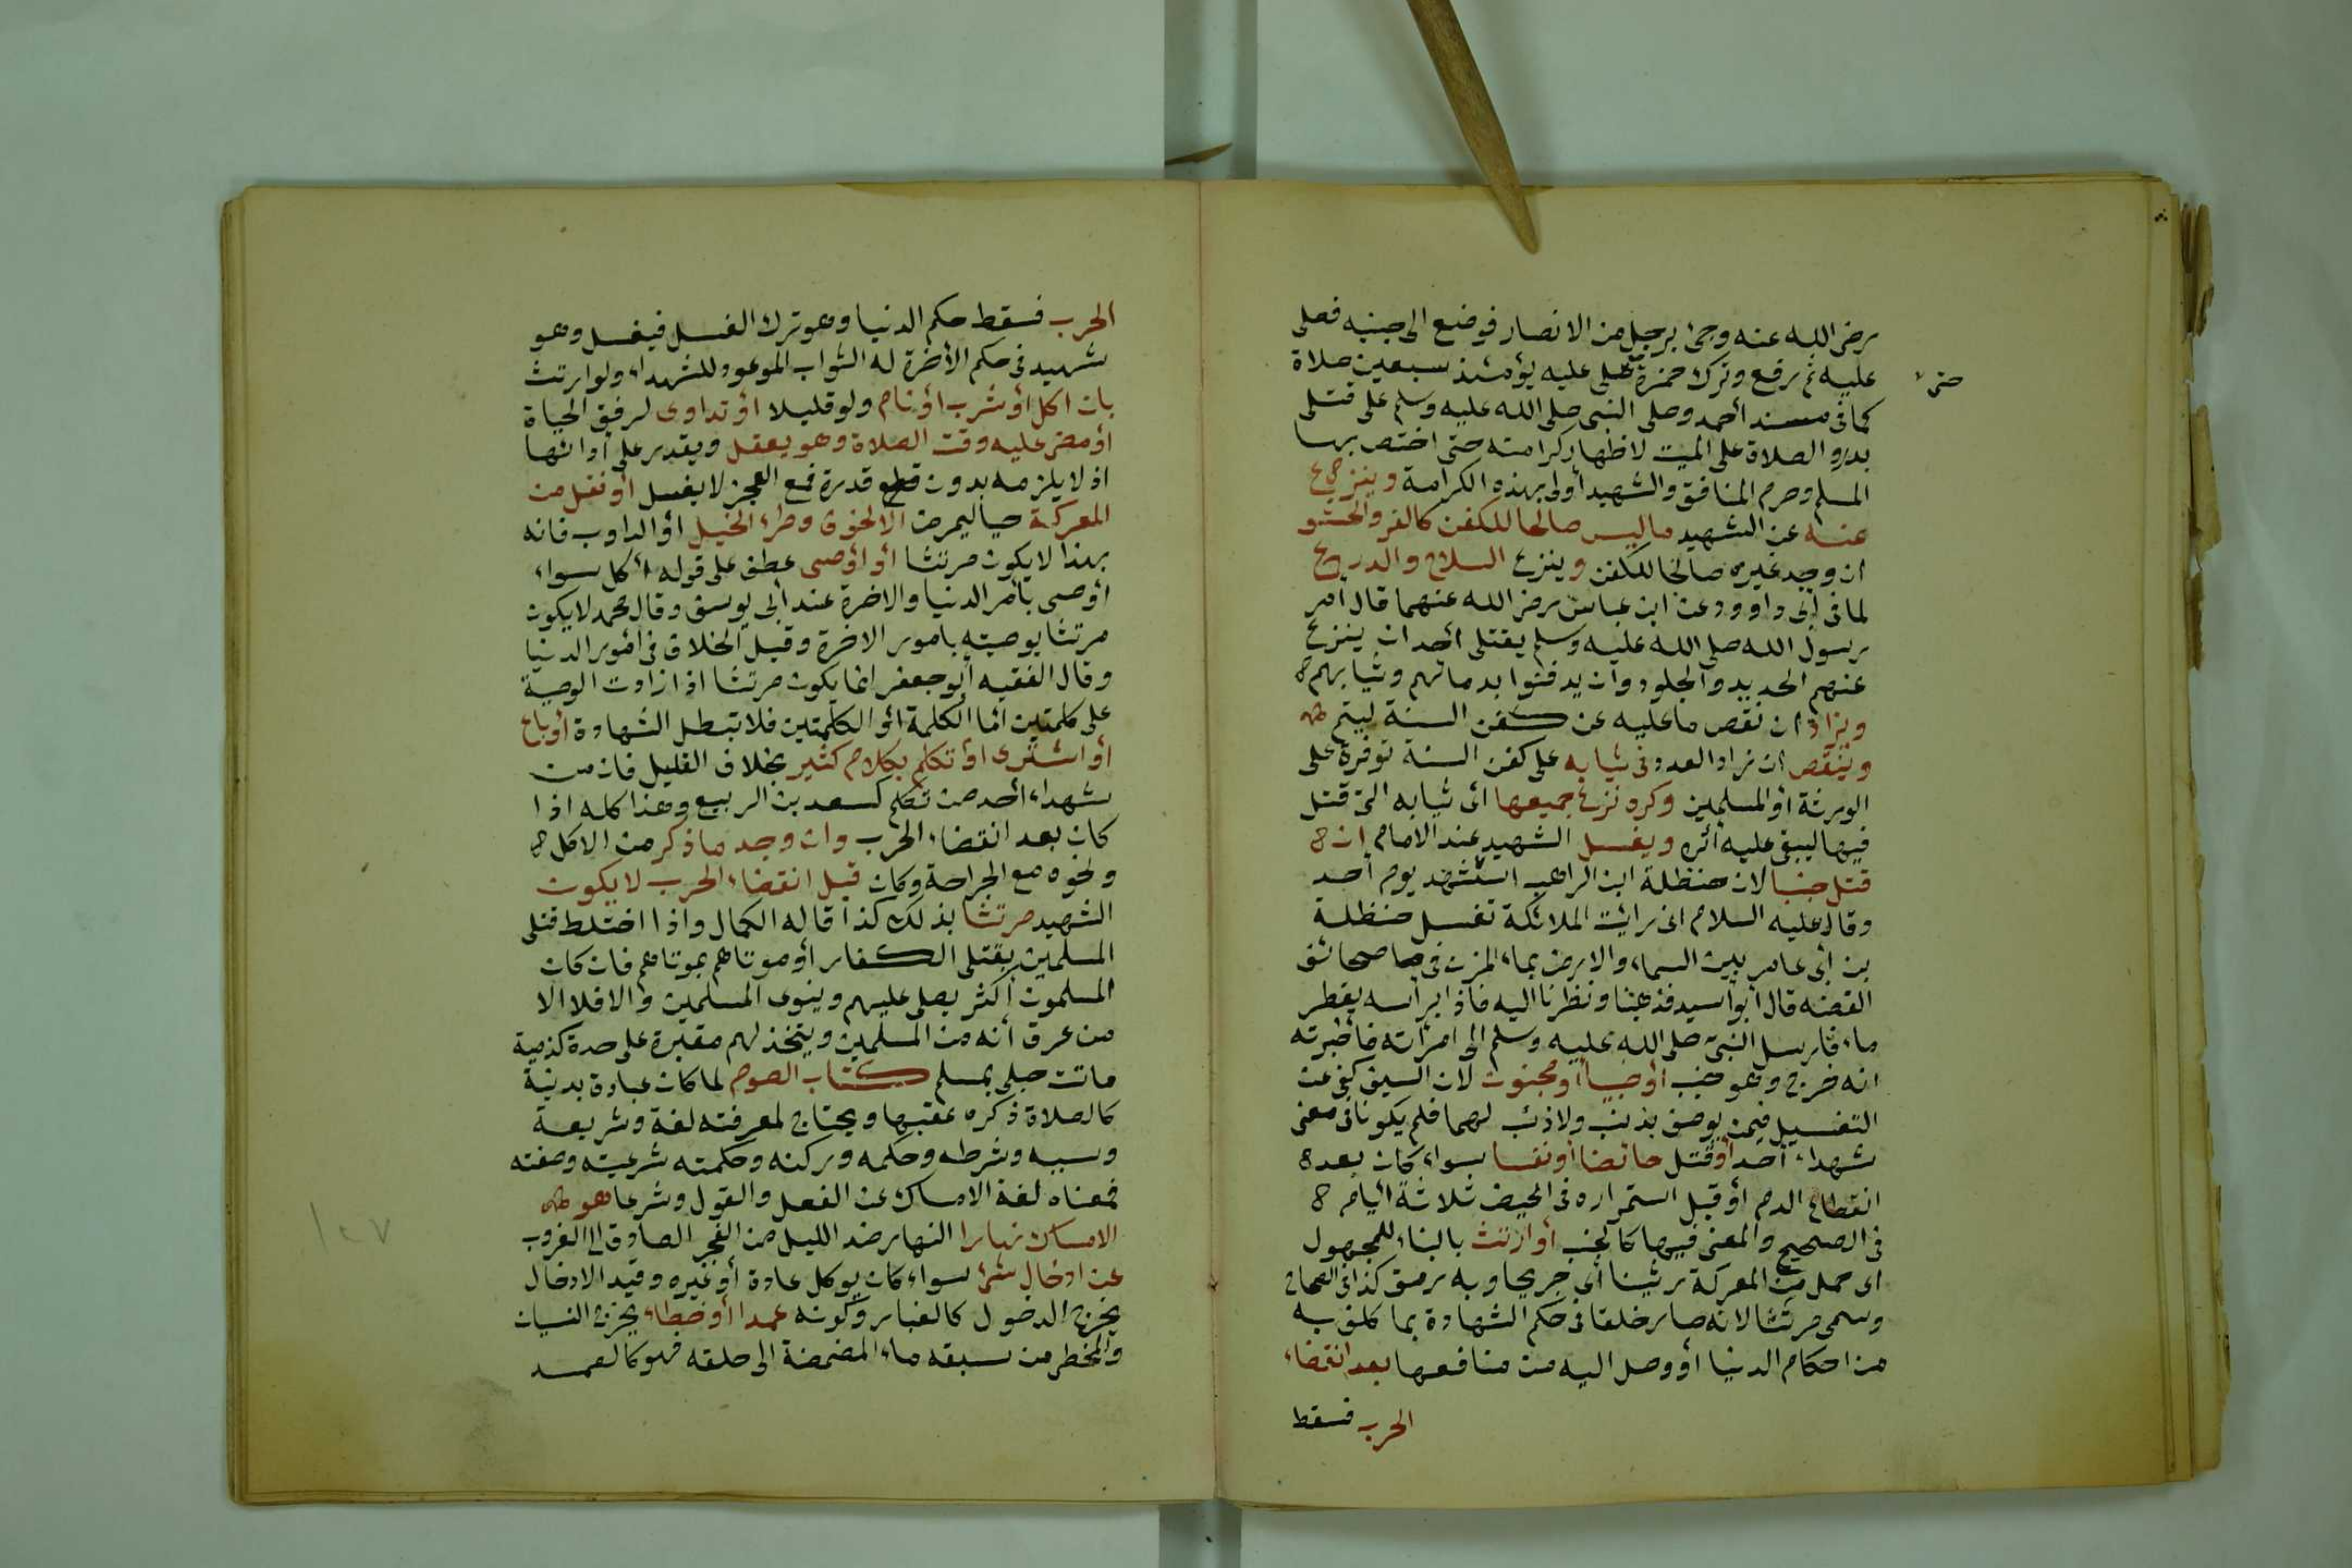 رضى الله عنه وجئ برجل من الانصار فوضع الى جنبه فصلى
عليه ثم رفع وترك حمزة صلى عليه يؤمئذ سبعين صلاة
حتى
كما فى مسند أحمد وصلى النبى صلى الله عليه وسلم على قتلى
بدر والصلاة على الميت لاظهار كرامته حتى اختص بها
المسلم وحرم المنافق والشهيد أولى بهذه الكرامة وينزع
عنه عن الشهيد ما ليس صالحا للكفن كالفرو والحشو
ان وجد غيره صالحا للكفن وينزع السلاح والدروع
لما فى أبى داوود عن ابن عباس رضى الله عنهما قال أمر
رسول الله صلى الله عليه وسلم بقتلى أحد ان ينزع
عنهم الحديد والجلود وان يدفنوا بدمائهم وثيابهم
ويزاد ان نقص ما عليه عن كفن السنة ليتم
وينقص ان زاد العدد فى ثيابه على كفن السنة توفرة على
الورثة أو المسلمين وكره نزع جميعها أى ثيابه التى قتل
فيها ليبقى عليه أثره ويغسل الشهيد عند الامام ان
قتل جنبا لان حنظلة ابن الراهب استشهد يوم أحد
وقال عليه السلام انى رائت الملائكة تغسل حنظلة
بن أبى عامر بين السماء والارض بماء المزن فى صحائف
الفضه قال أبو أسيد فذهبنا ونظرنا اليه فاذا برأسه يقطر
ماء فارسل النبى صلى الله عليه وسلم الى امرأته فاخبرته
انه خرج وهو جنب أو صبيا أو مجنون لان السيف كفى عن
التغسيل فيمن يوصف بذنب ولا ذنب لهما فلم يكونا فى معنى
شهداء أحد أو قتل حائضا أو نفسا سواء كان بعد
انقطاع الدم أو قبل استمراره فى الحيض ثلاثة أيام
فى الصحيح والمعنى فيها كالجنب أو ارتث بالبناء للمجهول
اى حمل من المعركة رثيثا أى جريحا وبه رمق كذا فى الصحاح
وسمى مرتثا لانه صار خلقا فى حكم الشهادة بما كلف به
من احكام الدنيا أو وصل اليه من منافعها بعد انقضاء
الحرب فسقط
الحرب فسقط حكم الدنيا وهو ترك الغسل فيغسل وهو
شهيد فى حكم الأخرة له الثواب الموعود للشهداء ولو ارتث
بان اكل أو شرب أو نام ولو قليلا أو تداوى لرفق الحياة
أو مضى عليه وقت الصلاة وهو يعقل ويقدر على أدائها
اذ لا يلزمه بدون قدرة فمع العجز لا يغسل أو نقل من
المعركة حيا ليمرض الا لخوف وطء الخيل أو الداوب فانه
بهذا لا يكون مرتثا أو أوصى عطف على قوله أكل سواء
أوصى بأمر الدنيا والاخرة عند أبى يوسف وقال محمد لا يكون
مرتثا بوصيته بامور الاخرة وقيل الخلاف فى أمور الدنيا
وقال الفقيه أبو جعفر انما يكون مرتثا اذا زادت الوصية
على كلمتين أما الكلمة أو الكلمتين فلا تبطل الشهادة أو باع
أو اشترى أو تكلم بكلام كثير بخلاف القليل فان من
شهداء أحد من تكلم كسعد بن الربيع وهذا كله اذا
كان بعد انقضاء الحرب وان وجد ما ذكر من الاكل
ونحوه مع الجراحة وكان قبل انقضاء الحرب لا يكون
الشهيد مرتثا بذلك كذا قاله الكمال واذا اختلط قتلى
المسلمين بقتلى الكفار أو موتاهم بموتاهم فان كان
المسلمون أكثر يصلى عليهم وينوى المسلمين والا فلا الا
من عرف أنه من المسلمين ويتخذ لهم مقبرة على حدة كذمية
ماتت حبلى بمسلم كتاب الصوم لما كان عبادة بدنية
كالصلاة ذكره عقبها ويحتاج لمعرفته لغة وشريعة
وسببه وشرطه وحكمه وركنه وحكمته شرعيته وصفته
فمعناه لغة الامساك عن الفعل والقول وشرعا هو
الامساك نهارا النهار ضد الليل من الفجر الصادق الى الغروب
عن ادخال شئ سواء كان يوكل عادة أو غيره وقيد الادخال
يخرج الدخول كالغبار وكونه عمدا أو خطاء يخرج النسيان
والمخطر من سبقه ماء المضمضة الى حلقه فهو كالعمد
١٢٧